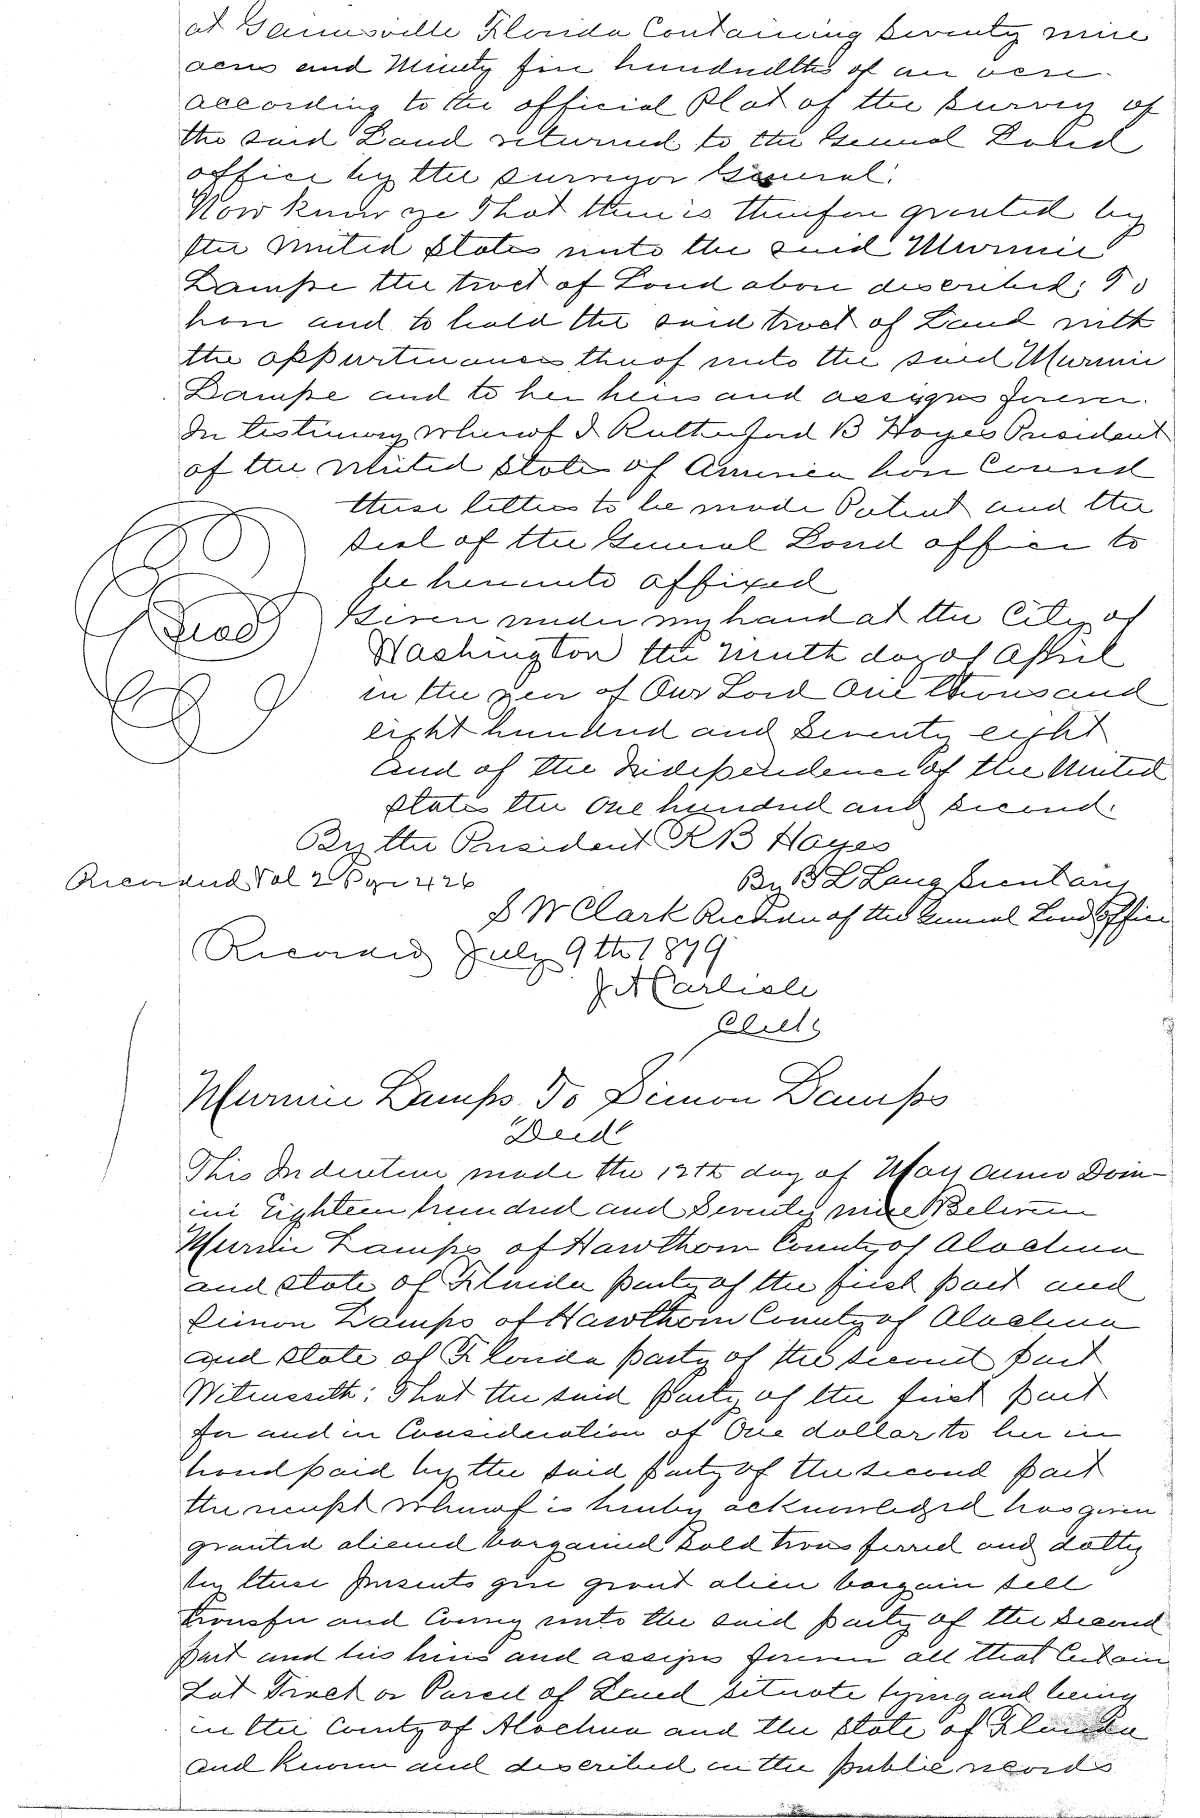 at Gainesville Florida Containing Seventy nine
acres and Ninety five hundredths of an acre.
according to the official Plat of the Survey of
the said Land returned to the General Land
office by the Surveyor General.
Now know ye That there is therefore granted by
the United States unto the said
the tract of Land above described; To
have and to hold the said tract of Land with
the appurtenances thereof unto the said
and to her heirs and assigns forever.
In testimony whereof I Rutherford B Hayes President
of the United States of America have Caused
these letters to be made Patent and the
Seal of the General Land office to
be hereunto affixed
Seal
Given under my hand at the City of
Washington the ninth day of April
in the year of Our Lord One thousand
eight hundred and Seventy eight
and of the Independence of the United
States the One hundred and second.
By the President R B Hayes
Recorded Vol 2 Page 426
By B L Lang Secretary
S W Clark Recorder of the General Land office
Recorded July 9th 1879
J A Carlisle
Clerk
To Simon
"Deed"
This Indenture made the 12th day of May anno Dom-
ini Eighteen hundred and Seventy nine Between
of Hawthorn County of Alachua
and State of Florida party of the first part and
Simon of Hawthorn County of Alachua
and State of Florida party of the second part
Witnesseth: That the said party of the first part
for and in Consideration of One dollar to her in
hand paid by the said party of the second part
the receipt whereof is hereby acknowledged has given
granted aliened bargained Sold transferred and doth
by these presents give grant alien bargain sell
transfer and Convey unto the said party of the second
part and his heirs and assigns forever all that Certain
Lot Tract or Parcel of Land situate lying and being
in the County of Alachua and the State of Florida
and known and described in the public records